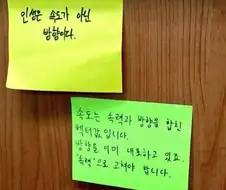 인생은 속도가 아닌
방향이다.
속도는 속력과 방향을 합친
벡터값 입니다.
방향을 이미 내포하고 있죠.
"속력"으로 고쳐야 합니다.